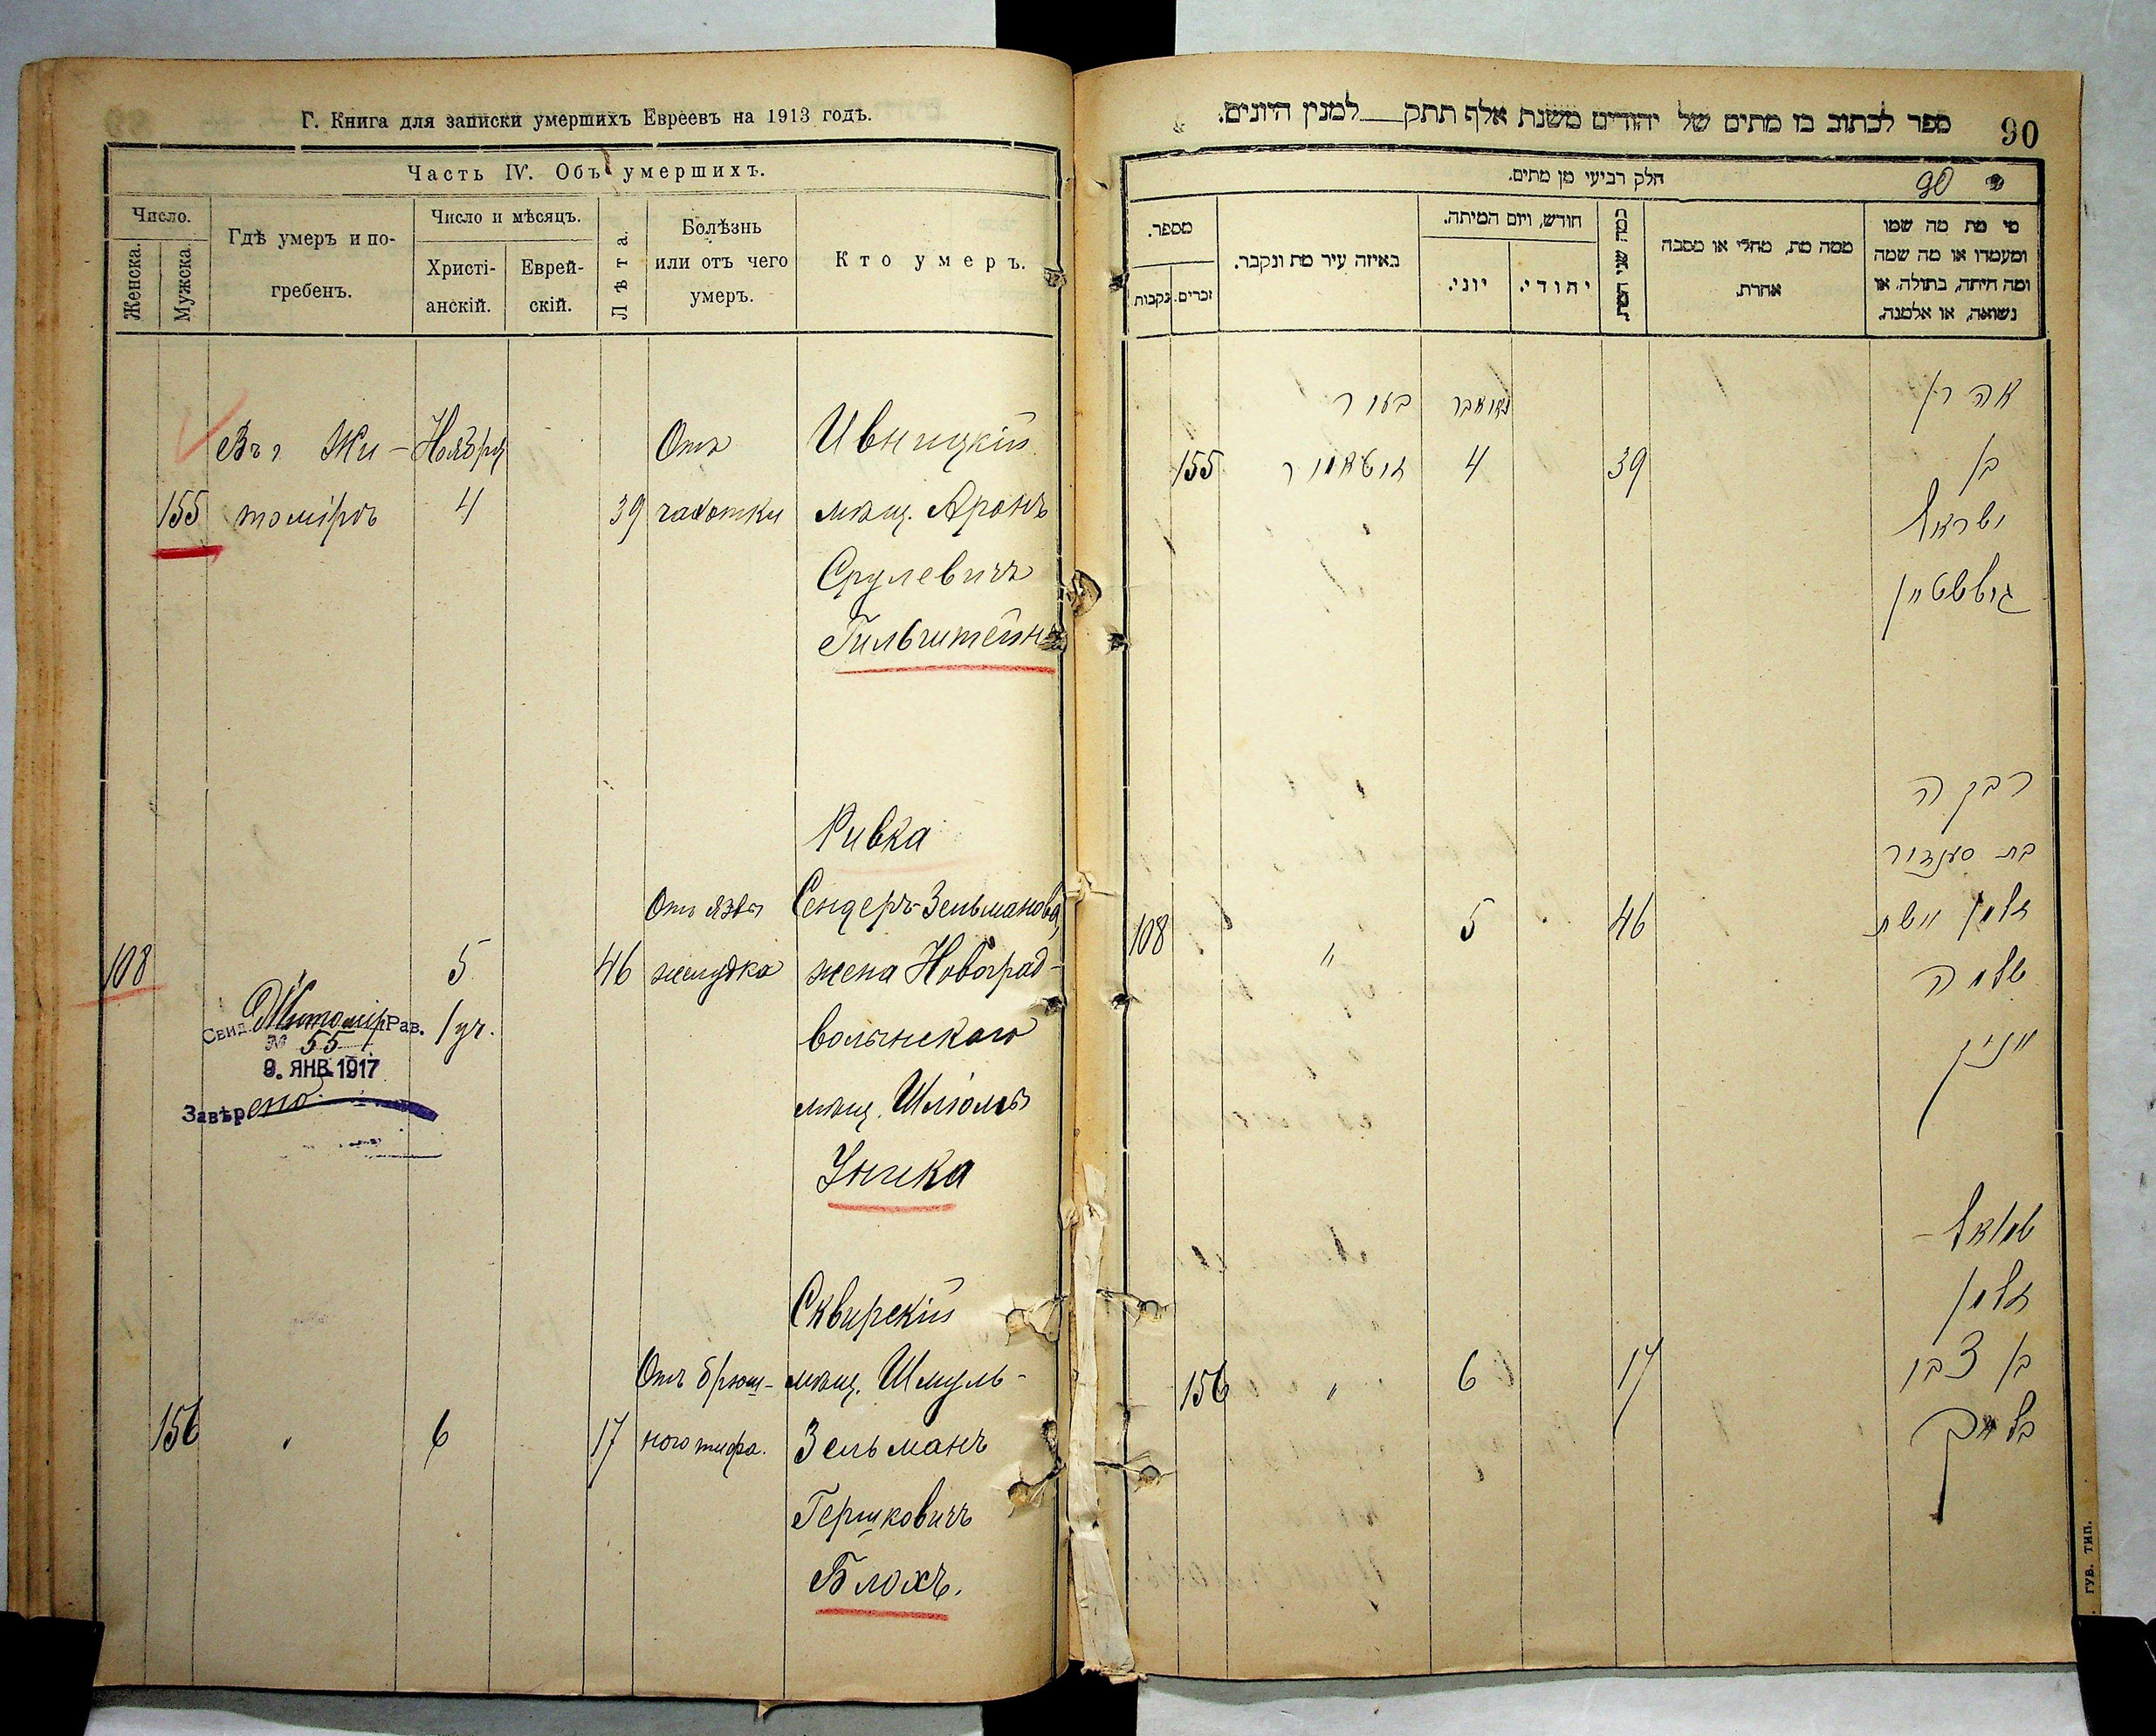 Г. Книга для записки умершихъ Евреевъ на 1913 годъ.
Часть IV. Объ умершихъ.
Число.
Женска.
Мужска.
Гдѣ умеръ и по-
гребенъ.
Число и мѣсяцъ.
Христі-
анскій.
Еврей-
скій.
Лѣта.
Болѣзнь
или отъ чего
умеръ.
Кто умеръ.
Въ г. Жи- Ноября Отъ Ивницкій
155 томірѣ 4 39 чахотки мѣщ. Аронъ
Срулевичъ
Гильчитейнъ
Ривка
Отъ язвы Сендеръ-Зельманова,
108 5 46 желудка жена Новоград-
Свид. Житомір Рав. 1 уч. волынскаго
№ 55
9. ЯНВ 1917
Завѣрено
мѣщ. Шлiомы
Уника
Сквирскій
Отъ брюш- мѣщ. Шмуль-
156 " 6 17 ного тифа. Зельманъ
Гершковичъ
Блохъ.
ספר לכתוב בו מתים של יהודים משנת אלף תתק למנין היונים.
90
חלק רביעי מן מתים.
90
מספר.
נקבות
זכרים.
באיזה עיר מת ונקבר.
חודש, ויום המיתה.
יוני.
יהודי.
כמה שני המת
ממה מת, מחלי או מסבה
אחרת.
מי מת מה שמו
ומעמדו או מה שמה
ומה היתה, בתולה, או
נשואה, או אלמנה.
אהרן
נאיאבר
בעיר
155 זיטאמיר 4 39 בן
ישראל
רבקה
בת סענדיר
108 " 5 46 זלמן אשת
שלמה
שמואל
זלמן
156 " 6 17 בן צבי
בלאך
гув. тип.